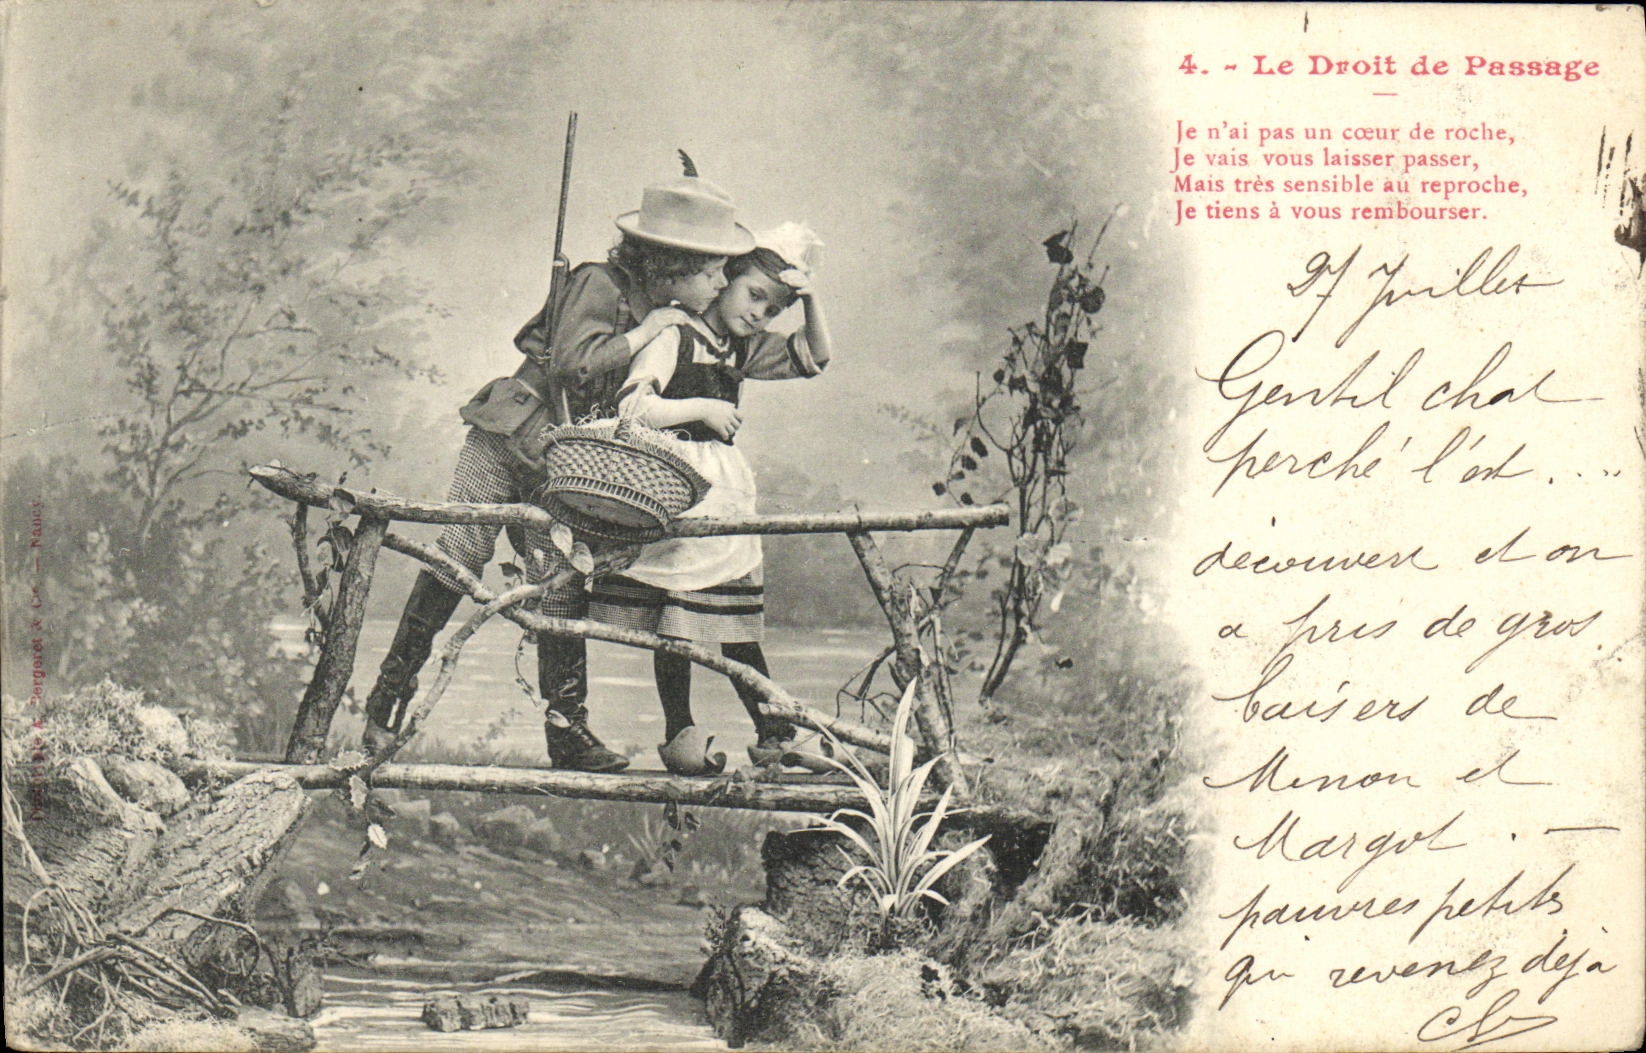 4. - Le Droit de Passage
Je n'ai pas un cœur de roche,
Je vais vous laisser passer,
Mais très sensible au reproche,
Je tiens à vous rembourser.
27 Juillet
Gentil chat
perché l'est ....
découvert et on
a pris de gros
baisers de
Minon et
Margot . —
pauvres petits
qui revenez déja
A. Bergeret & Cie — Nancy